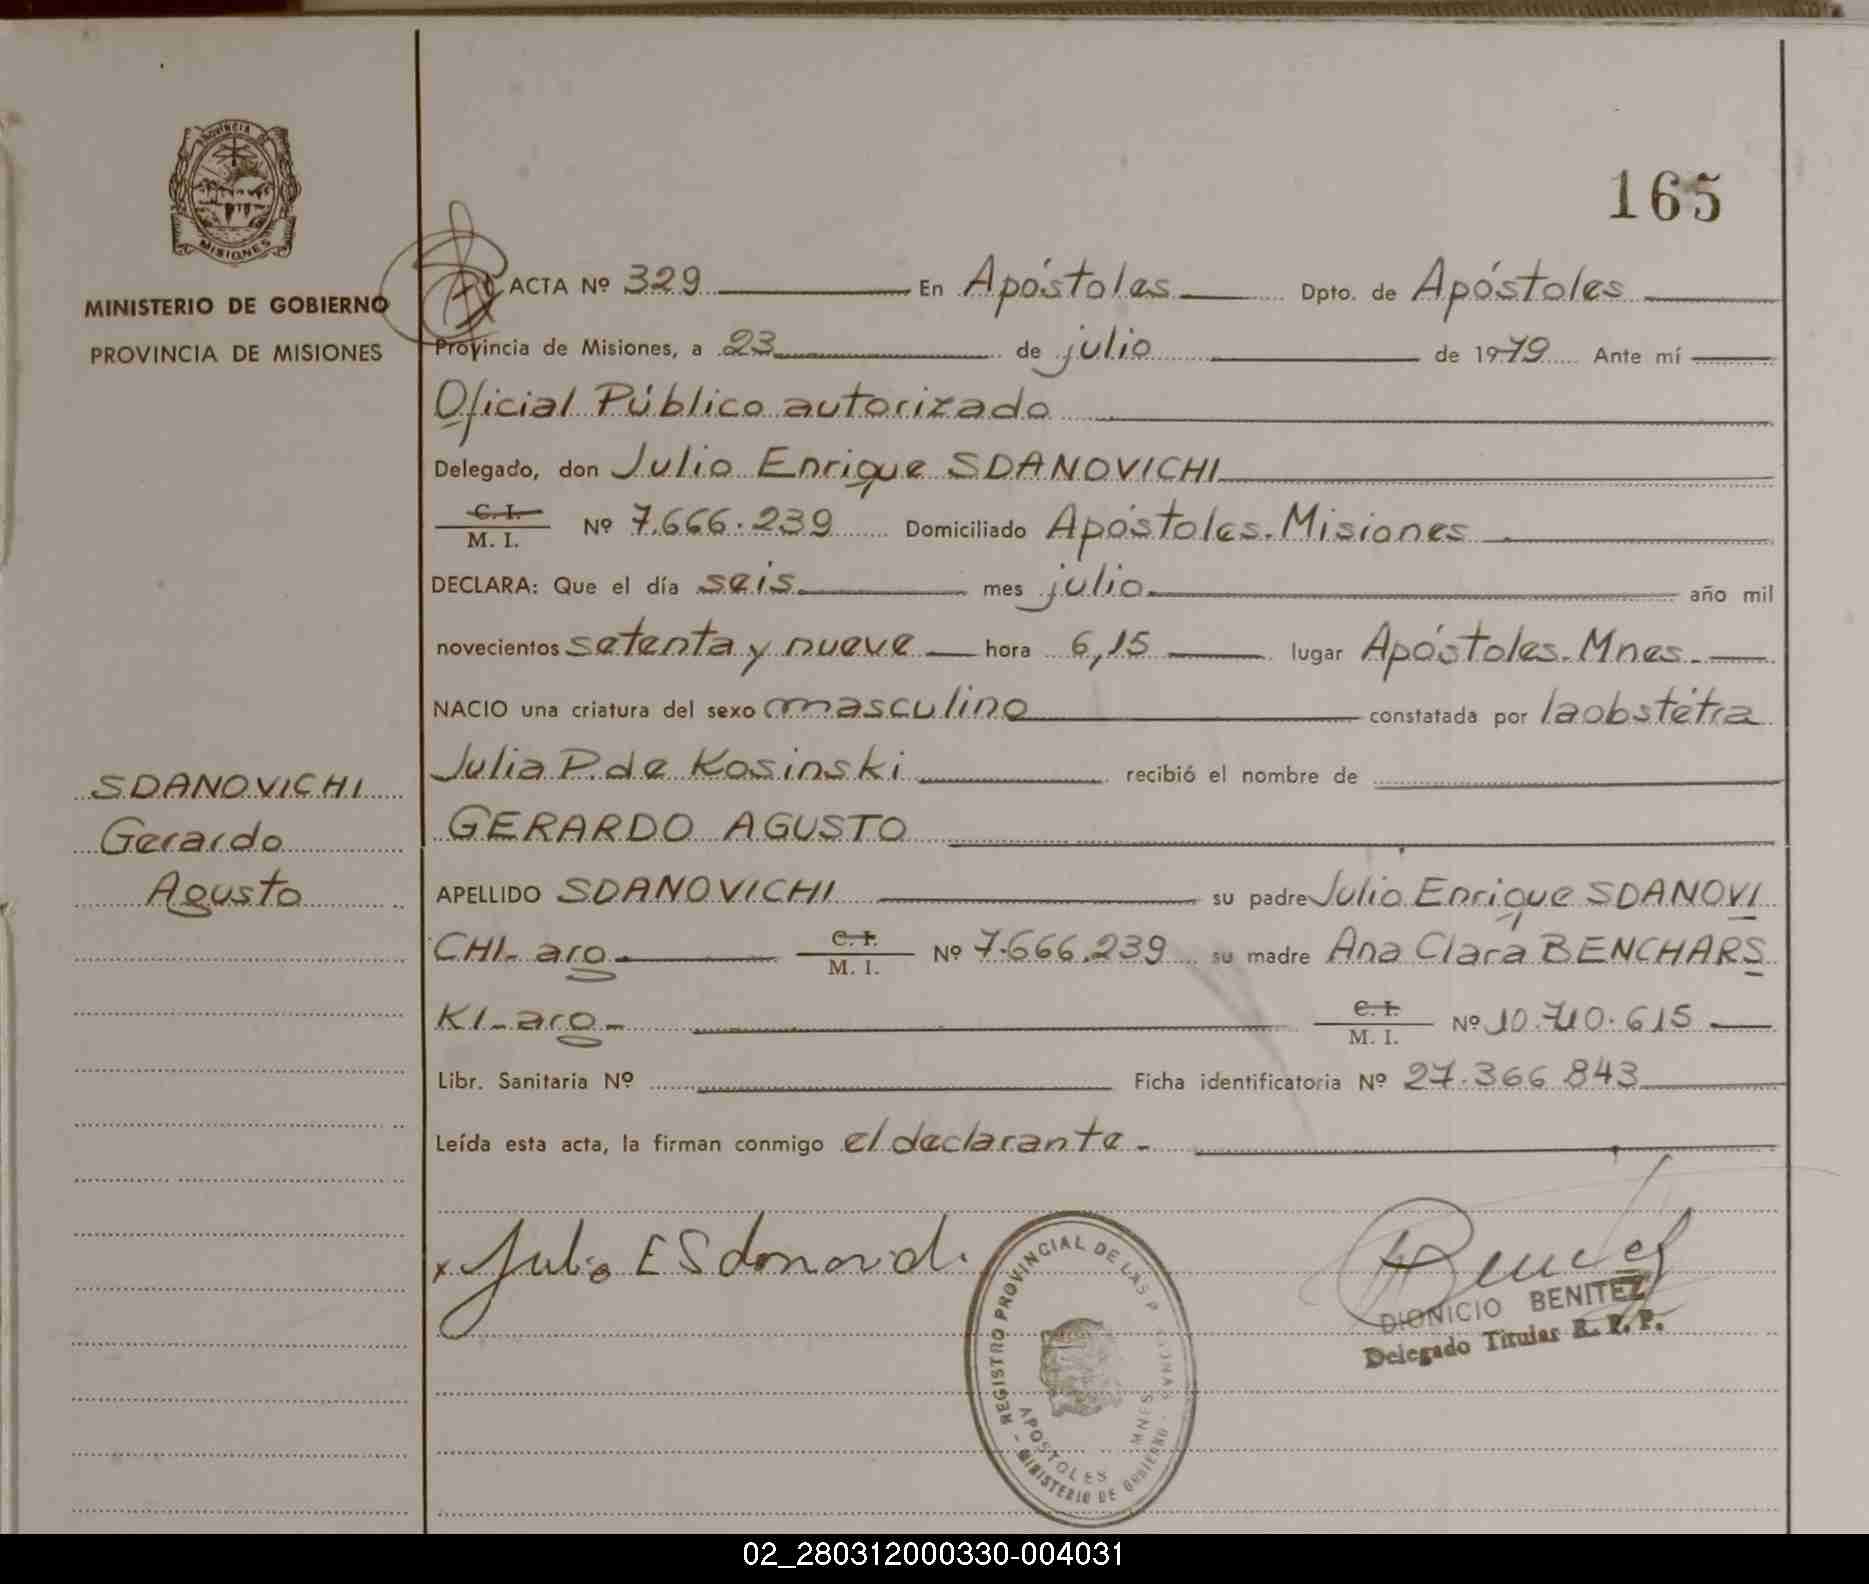 PROVINCIA DE
MISIONES
MINISTERIO DE GOBIERNO
PROVINCIA DE MISIONES
165
ACTA Nº 329 En Apóstoles Dpto. de Apóstoles
Provincia de Misiones, a 23 de julio de 1979 Ante mí
Oficial Público autorizado
Delegado, don Julio Enrique SDANOVICHI
C. I.
M. I. Nº 7.666.239 Domiciliado Apóstoles.Misiones
DECLARA: Que el día seis mes julio año mil
novecientos setenta y nueve hora 6,15 lugar Apóstoles.Mnes.
NACIO una criatura del sexo masculino constatada por la obstétra
Julia P. de Kosinski recibió el nombre de
GERARDO AGUSTO
SDANOVICHI
Gerardo
Agusto
APELLIDO SDANOVICHI su padre Julio Enrique SDANOVI
CHI-aro C. I.
M. I. Nº 7.666.239 su madre Ana Clara BENCHARS
KI-aro- C. I.
M. I. Nº 10.710.615
Libr. Sanitaria Nº Ficha identificatoria Nº 27.366 843
Leída esta acta, la firman conmigo el declarante-
x Julio E Sdanovich
REGISTRO PROVINCIAL DE LAS P
APOSTOLES MNES
- MINISTERIO DE GOBIERNO -
DIONICIO BENITEZ
Delegado Titular R. P. P.
02_280312000330-004031